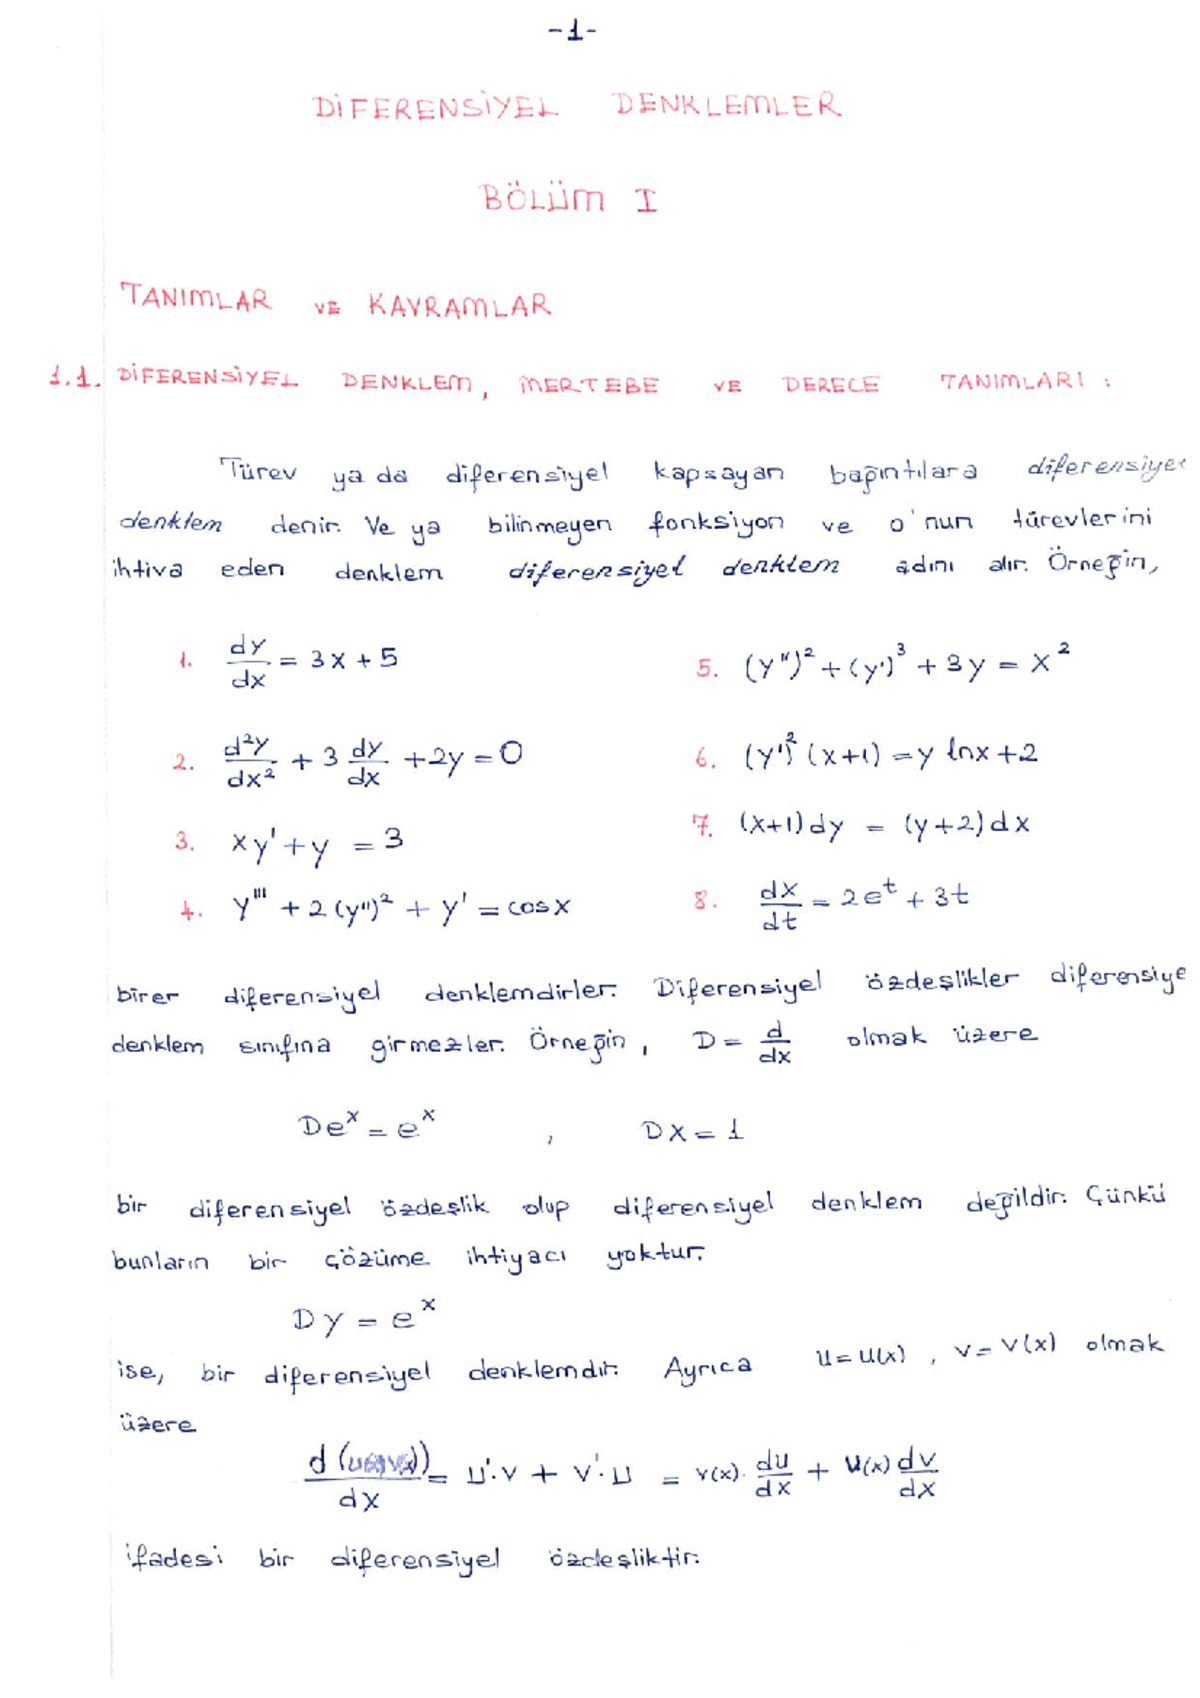 -1-
DİFERENSİYEL DENKLEMLER
BÖLÜM I
TANIMLAR VE KAVRAMLAR
1.1. DİFERENSİYEL DENKLEM, MERTEBE VE DERECE TANIMLARI :
Türev ya da diferensiyel kapsayan bağıntılara diferensiye
denklem denir. Ve ya bilinmeyen fonksiyon ve o'nun türevlerini
ihtiva eden denklem diferensiyel denklem adını alır. Örneğin,
1. dy/dx = 3x + 5
2. d²y/dx² + 3 dy/dx + 2y = 0
3. xy' + y = 3
4. y''' + 2(y'')² + y' = cosx
5. (y'')² + (y')³ + 3y = x²
6. (y')² (x+1) = y lnx + 2
7. (x+1)dy = (y+2)dx
8. dx/dt = 2e^t + 3t
birer diferensiyel denklemdirler. Diferensiyel özdeşlikler diferensiye
denklem sınıfına girmezler. Örneğin, D = d/dx olmak üzere
De^x = e^x , Dx = 1
bir diferensiyel özdeşlik olup diferensiyel denklem değildir. Çünkü
bunların bir çözüme ihtiyacı yoktur.
Dy = e^x
ise, bir diferensiyel denklemdir. Ayrıca u = u(x) , v = v(x) olmak
üzere
d(u(x)v(x))/dx = u'.v + v'.u = v(x). du/dx + u(x) dv/dx
ifadesi bir diferensiyel özdeşliktir.